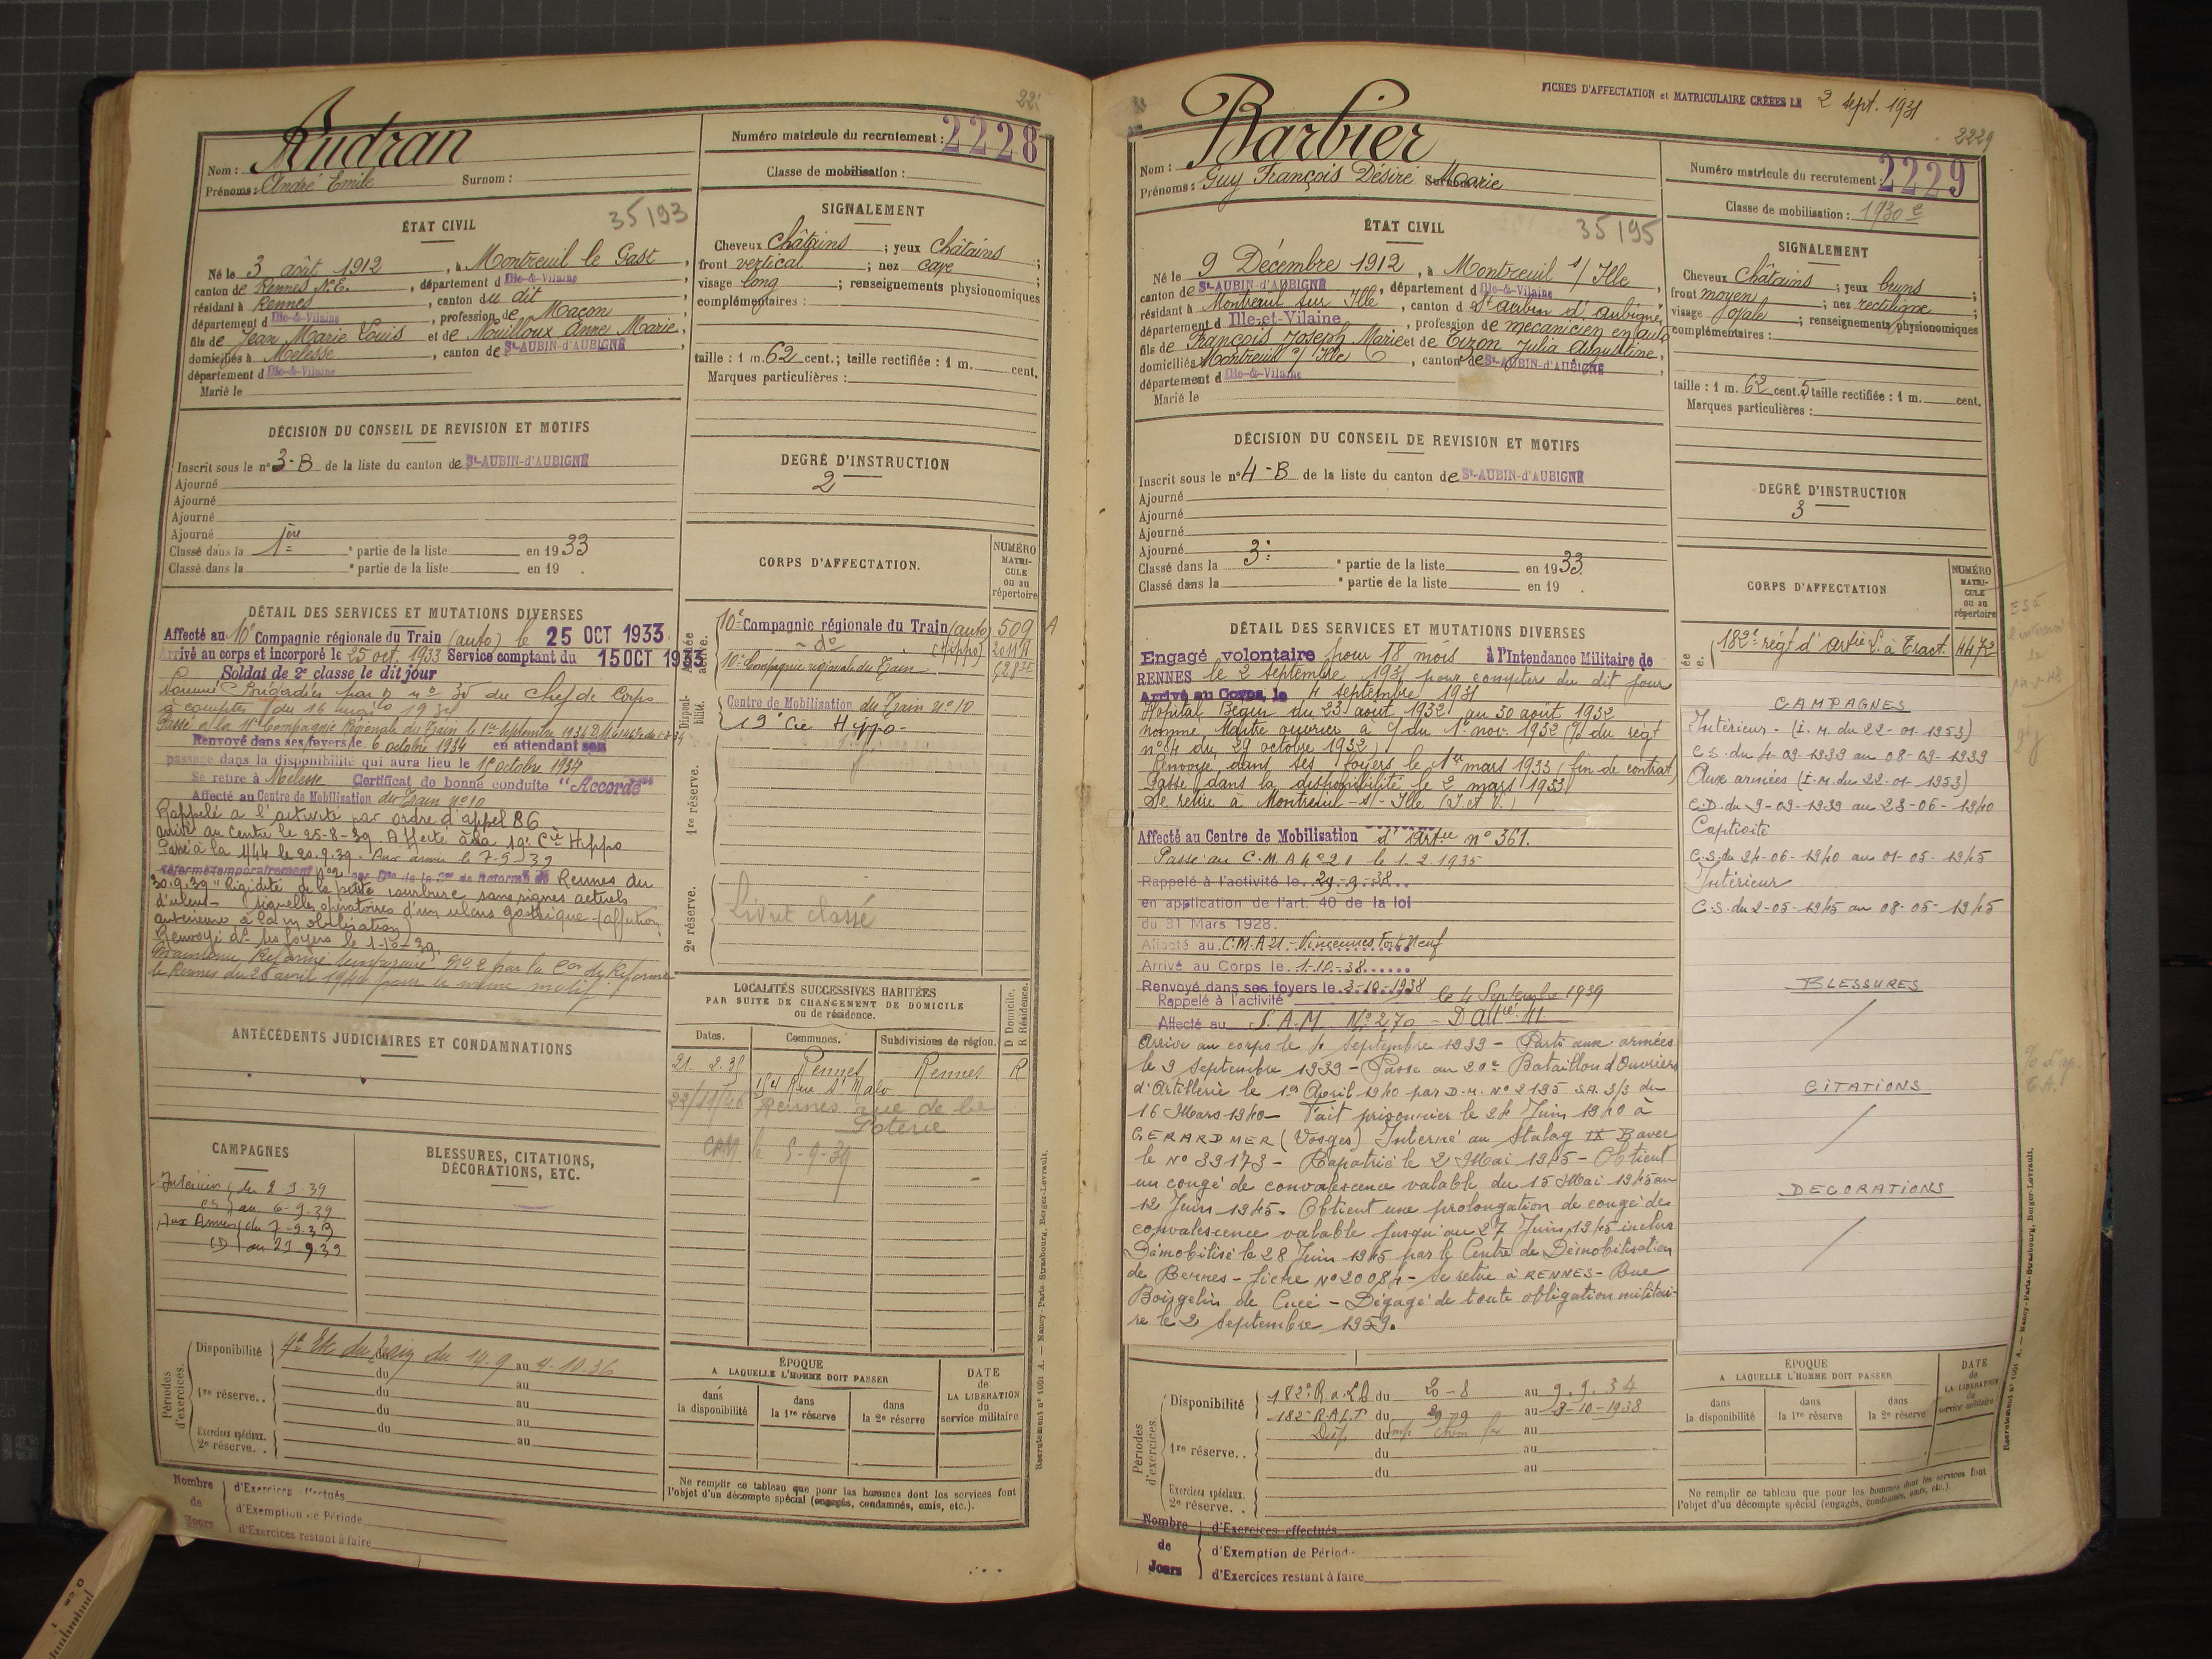 221
Audran
Nom :
Prénoms : André Emile Surnom :
Numéro matricule du recrutement : 2228
Classe de mobilisation :
ÉTAT CIVIL
35193
Né le 3 août 1912, à Montreuil le Gast,
canton de Rennes N.E., département d Ille-&-Vilaine
résidant à Rennes, canton du dit
département d Ille-&-Vilaine, profession de Maçon
fils de Jean Marie Louis et de Nouilloux Anne Marie,
domiciliés à Melesse, canton de St-AUBIN-d'AUBIGNÉ
département d Ille-&-Vilaine
Marié le
SIGNALEMENT
Cheveux châtains ; yeux châtains ;
front vertical ; nez cave ;
visage long ; renseignements physionomiques
complémentaires :
taille : 1 m. 62 cent. ; taille rectifiée : 1 m. cent.
Marques particulières :
DÉCISION DU CONSEIL DE REVISION ET MOTIFS
Inscrit sous le n° 3-B de la liste du canton de St-AUBIN-d'AUBIGNÉ
Ajourné
Ajourné
Ajourné
Ajourné
Classé dans la 1ère partie de la liste en 1933
Classé dans la e partie de la liste en 19 .
DEGRÉ D'INSTRUCTION
2
CORPS D'AFFECTATION.
NUMÉRO MATRI-CULE ou au répertoire
Armée active.
10e Compagnie régionale du Train (auto) 509 A
- do - (Hippo)
10e Compagnie régionale du Train
Disponibilité.
Centre de Mobilisation du Train n° 10
19e Cie Hippo-
1re réserve.
2e réserve.
Livret classé
DÉTAIL DES SERVICES ET MUTATIONS DIVERSES
Affecté au 10e Compagnie régionale du Train (auto) le 25 OCT 1933
Arrivé au corps et incorporé le 25 oct. 1933 Service comptant du 15 OCT 1933
Soldat de 2e classe le dit jour
Nommé Brigadier par O. n° 35 du Chef de Corps
à compter du 16 1934
Passé à la 11e Compagnie Régionale du Train le 1er septembre 1934
Renvoyé dans ses foyers le 6 octobre 1934 en attendant son
passage dans la disponibilité qui aura lieu le 15 octobre 1934
Se retire à Melesse Certificat de bonne conduite "Accordé"
Affecté au Centre de Mobilisation du Train n° 10
Rappelé à l'activité par ordre d'appel 86
arrivé au Centre le 25-8-39. Affecté à la 19e Cie Hippo
Passé à la 1/44 le 20.9.39. Aux armées le 7-9-39
Réformé temporairement n° 2 par Don de la Con de Réforme de Rennes du
30.9.39 "Rigidité de la petite courbure sans signes actuels
d'ulcus - séquelles opératoires d'un ulcus gastrique - (affection
antérieure à la mobilisation)
Renvoyé ds ses foyers le 1-10-39.
Maintenu Réformé temporaire N° 2 par la Con de Réforme
de Rennes du 26 avril 1940 pour le même motif.
ANTÉCÉDENTS JUDICIAIRES ET CONDAMNATIONS
LOCALITÉS SUCCESSIVES HABITÉES
PAR SUITE DE CHANGEMENT DE DOMICILE
ou de résidence.
D Domicile. R Résidence.
Dates. Communes. Subdivisions de région.
21. 2. 35 Rennes Rennes R
184 Rue St Malo
22/11/46 Rennes rue de la
Poterie
CRM le 5-9-39
CAMPAGNES
Intérieur du 2-9-39
CS au 6-9-39
Aux Armées du 7-9-39
CD au 29 9 39
BLESSURES, CITATIONS,
DÉCORATIONS, ETC.
Périodes d'exercices.
Disponibilité 4e Esc du Train du 14.9 au 4.10.36
du au
1re réserve.. du au
du au
Exercices spéciaux. 2e réserve. . du au
ÉPOQUE
A LAQUELLE L'HOMME DOIT PASSER
dans la disponibilité
dans la 1re réserve
dans la 2e réserve
DATE de LA LIBÉRATION du service militaire
Ne remplir ce tableau que pour les hommes dont les services font
l'objet d'un décompte spécial (engagés, condamnés, omis, etc.).
Nombre de Jours
d'Exercices effectués
d'Exemption de Période
d'Exercices restant à faire
Recrutement n° 1051 A. — Nancy-Paris-Strasbourg, Berger-Levrault.
FICHES D'AFFECTATION et MATRICULAIRE CRÉÉES LE 2 sept. 1931
2229
Barbier
Nom :
Prénoms : Guy François Désiré Marie Surnom :
Numéro matricule du recrutement : 2229
Classe de mobilisation : 1930 e
ÉTAT CIVIL
35195
Né le 9 Décembre 1912, à Montreuil s/ Ille
canton de St-AUBIN-D'AUBIGNÉ, département d Ille-&-Vilaine
résidant à Montreuil sur Ille, canton d St aubin d'aubigné,
département d Ille-et-Vilaine, profession de mécanicien en auto
fils de François Joseph Marie et de Tizon Julia Augustine,
domiciliés à Montreuil s/ Ille, canton de St-AUBIN-d'AUBIGNÉ
département d Ille-&-Vilaine
Marié le
SIGNALEMENT
Cheveux châtains ; yeux bruns ;
front moyen ; nez rectiligne ;
visage ovale ; renseignements physionomiques
complémentaires :
taille : 1 m. 62 cent. 5 taille rectifiée : 1 m. cent.
Marques particulières :
DÉCISION DU CONSEIL DE REVISION ET MOTIFS
Inscrit sous le n° 4-B de la liste du canton de St-AUBIN-d'AUBIGNÉ
Ajourné
Ajourné
Ajourné
Ajourné
Classé dans la 3e partie de la liste en 1933.
Classé dans la e partie de la liste en 19 .
DEGRÉ D'INSTRUCTION
3
CORPS D'AFFECTATION
NUMÉRO MATRI-CULE ou au répertoire
182e régt d'artie L. à Tract. 4472
DÉTAIL DES SERVICES ET MUTATIONS DIVERSES
Engagé volontaire pour 18 mois à l'Intendance Militaire de
RENNES le 2 septembre 1931 pour compter du dit jour
Arrivé au Corps, le 4 septembre 1931
Hôpital Bégin du 23 août 1932 au 30 août 1932
nommé Maître ouvrier à c/ du 1er nov. 1932 (O/ du régt
n° 84 du 29 octobre 1932)
Renvoyé dans ses foyers le 1er mars 1933 (fin de contrat)
Passé dans la disponibilité le 2 mars 1933.
Se retire à Montreuil-s/-Ille (I. et V.)
Affecté au Centre de Mobilisation d'Artie n° 361.
Passé au C.M.A n° 21 le 1.2.1935
Rappelé à l'activité le 29-9-38...
en application de l'art. 40 de la loi
du 31 Mars 1928.
Affecté au C.M.A 21. Vincennes Fort Neuf
Arrivé au Corps le 1-10-38......
Renvoyé dans ses foyers le 3-10-1938
Rappelé à l'activité le 4 Septembre 1939
Affecté au S.A.M. N° 270 - D Artie 11
Arrivé au corps le 4 Septembre 1939 - Parti aux armées
le 9 Septembre 1939 - Passé au 20e Bataillon d'Ouvriers
d'Artillerie le 1er Avril 1940 par D.M. N° 2195 S.A. 3/3 du
16 Mars 1940 - Fait prisonnier le 24 Juin 1940 à
GERARDMER (Vosges) Interné au Stalag IX B avec
le N° 39173 - Rapatrié le 2 Mai 1945 - Obtient
un congé de convalescence valable du 15 Mai 1945 au
12 Juin 1945. Obtient une prolongation de congé de
convalescence valable jusqu'au 27 Juin 1945 inclus
Démobilisé le 28 Juin 1945 par le Centre de Démobilisation
de Rennes - fiche N° 20084 - Se retire à RENNES - Rue
Boisgelin de Cucé - Dégagé de toute obligation militai-
re le 2 Septembre 1959.
CAMPAGNES
Intérieur - (I.M. du 22-01-1953)
C.S. du 4-09-1939 au 08-09-1939
Aux armées (I.M. du 22-01-1953)
C.D. du 9-09-1939 au 23-06-1940
Captivité
C.S. du 24-06-1940 au 01-05-1945
Intérieur
C.S. du 2-05-1945 au 08-05-1945
BLESSURES
/
CITATIONS
/
DECORATIONS
/
Périodes d'exercices.
Disponibilité 182e R.a.L.T. du 20-8 au 9.9.34
182e R.A.L.T. du 29-9 au 3-10-1938
du au
1re réserve.. du au
du au
Exercices spéciaux. 2e réserve. .
ÉPOQUE
A LAQUELLE L'HOMME DOIT PASSER
dans la disponibilité
dans la 1re réserve
dans la 2e réserve
DATE de LA LIBÉRATION du service militaire
Ne remplir ce tableau que pour les hommes dont les services font
l'objet d'un décompte spécial (engagés, condamnés, omis, etc.).
Nombre de Jours
d'Exercices effectués
d'Exemption de Période
d'Exercices restant à faire
Recrutement n° 1051 A. — Nancy-Paris-Strasbourg, Berger-Levrault.